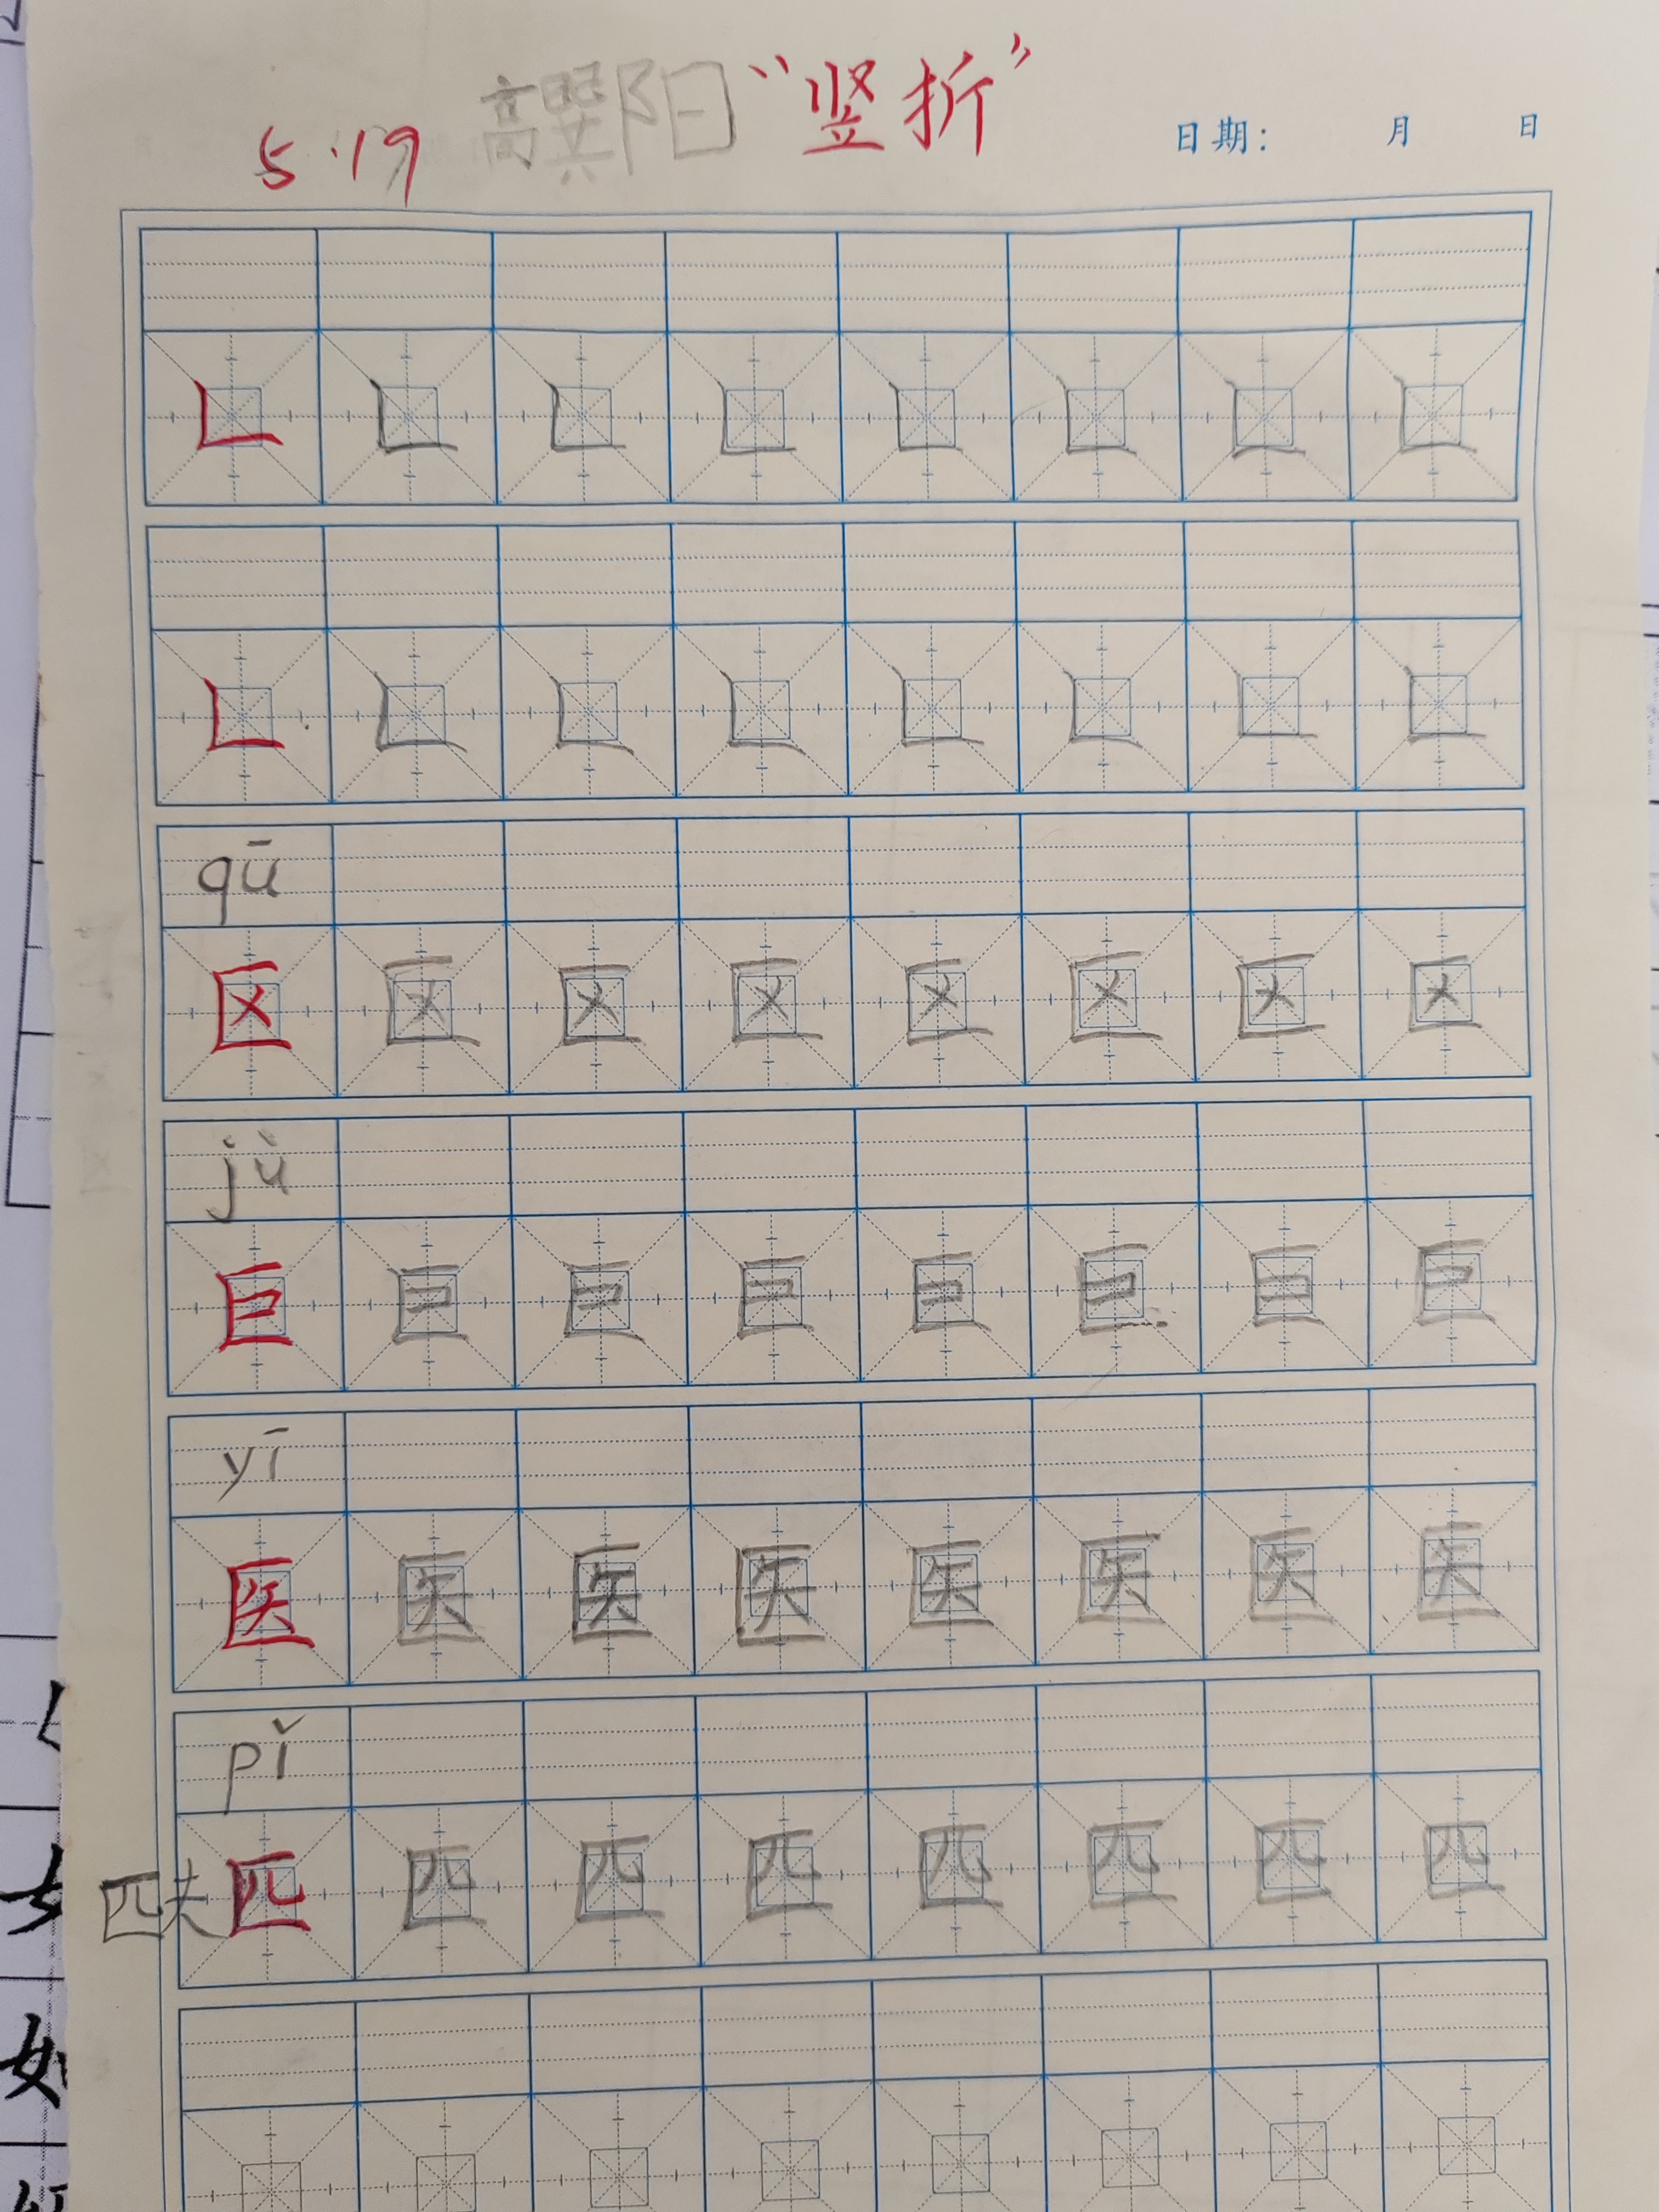 5·19 高巽阳 “竖折” 日期： 月 日
𠃊 𠃊 𠃊 𠃊 𠃊 𠃊 𠃊 𠃊
𠃊 𠃊 𠃊 𠃊 𠃊 𠃊 𠃊 𠃊
qū
区 区 区 区 区 区 区 区
jù
巨 巨 巨 巨 巨 巨 巨 巨
yī
医 医 医 医 医 医 医 医
pǐ
匹夫 匹 匹 匹 匹 匹 匹 匹 匹